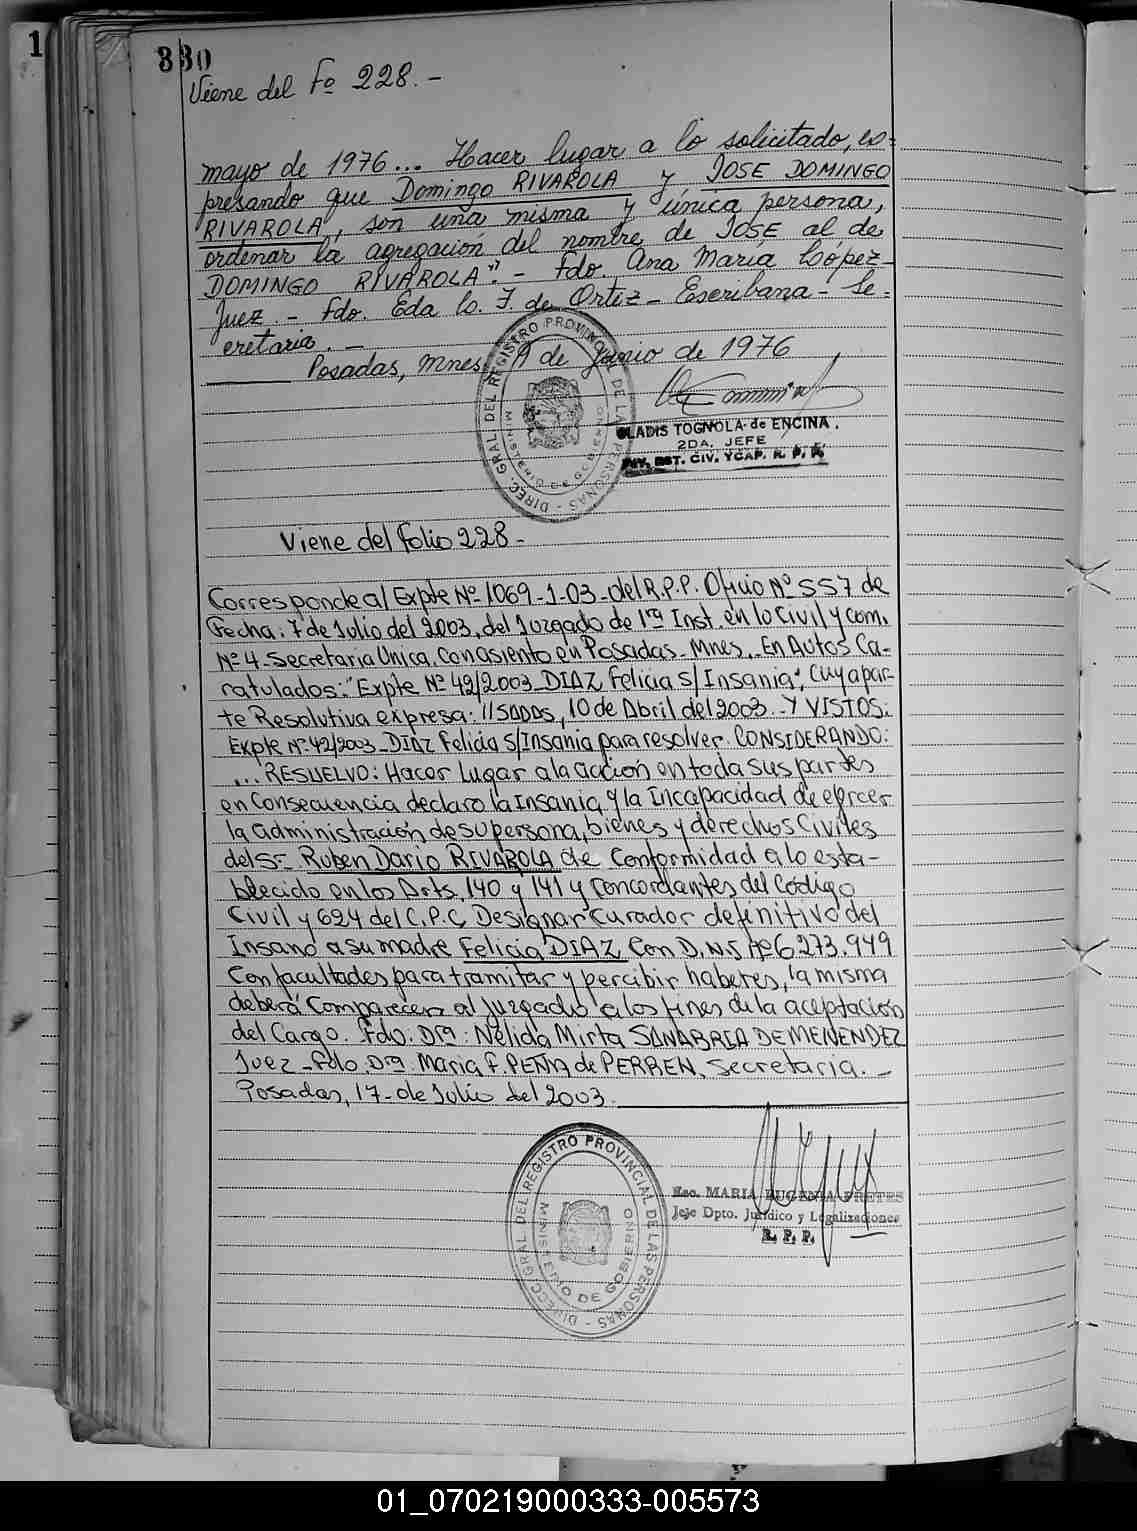 1
330
Viene del Fo 228.-
mayo de 1976... Hacer lugar a lo solicitado, ex=
presando que Domingo RIVAROLA y JOSE DOMINGO
RIVAROLA, son una misma y única persona,
ordenar la agregación del nombre de JOSE al de
DOMINGO RIVAROLA". - Fdo. Ana María López-
Juez. - Fdo. Eda Lo. F. de Ortiz - Escribana - Se=
cretaria. -
Posadas, Mnes. 9 de Junio de 1976
DIREC. GRAL. DEL REGISTRO PROVINCIAL DE LAS PERSONAS - MINISTERIO DE GOBIERNO
GLADIS TOGNOLA de ENCINA.
2DA. JEFE
DIV. EST. CIV. YCAP. R. P. P.
Viene del folio 228-
Corresponde al Expte Nº 1069-1-03-del R.P.P. Oficio Nº 557 de
Fecha: 7 de Julio del 2003, del Juzgado de 1ra Inst. en lo Civil y Com.
Nº 4-Secretaria Unica. Con asiento en Posadas-Mnes. En Autos Ca-
ratulados: "Expte Nº 42/2003-DIAZ Felicia S/Insania", Cuya par-
te Resolutiva expresa: "SADAS, 10 de Abril del 2003.-Y VISTOS:
Expte Nº 42/2003-DIAZ Felicia S/Insania para resolver. CONSIDERANDO:
...RESUELVO: Hacer Lugar a la acción en toda sus partes
en Consecuencia declaro la Insania y la Incapacidad de ejercer
la administración de su persona, bienes y derechos Civiles
del Sr Ruben Dario RIVAROLA de Conformidad a lo esta-
blecido en los Arts. 140 y 141 y Concordantes del Código
Civil y 624 del C.P.C. Designar Curador definitivo del
Insano a su madre Felicia DIAZ Con D.N.I Nº 6.273.949
Con facultades para tramitar y percibir haberes, la misma
deberá Comparecer al Juzgado a los fines de la aceptación
del Cargo. Fdo. Dra: Nélida Mirta SANABRIA DE MENENDEZ
Juez-Fdo Dra. Maria F. PEÑA de PERREN, Secretaria.-
Posadas, 17-de Julio del 2003.
DIRECC. GRAL. DEL REGISTRO PROVINCIAL DE LAS PERSONAS - MINISTERIO DE GOBIERNO
Esc. MARIA EUGENIA PRETES
Jefe Dpto. Jurídico y Legalizaciones
R. P. P.
01_070219000333-005573